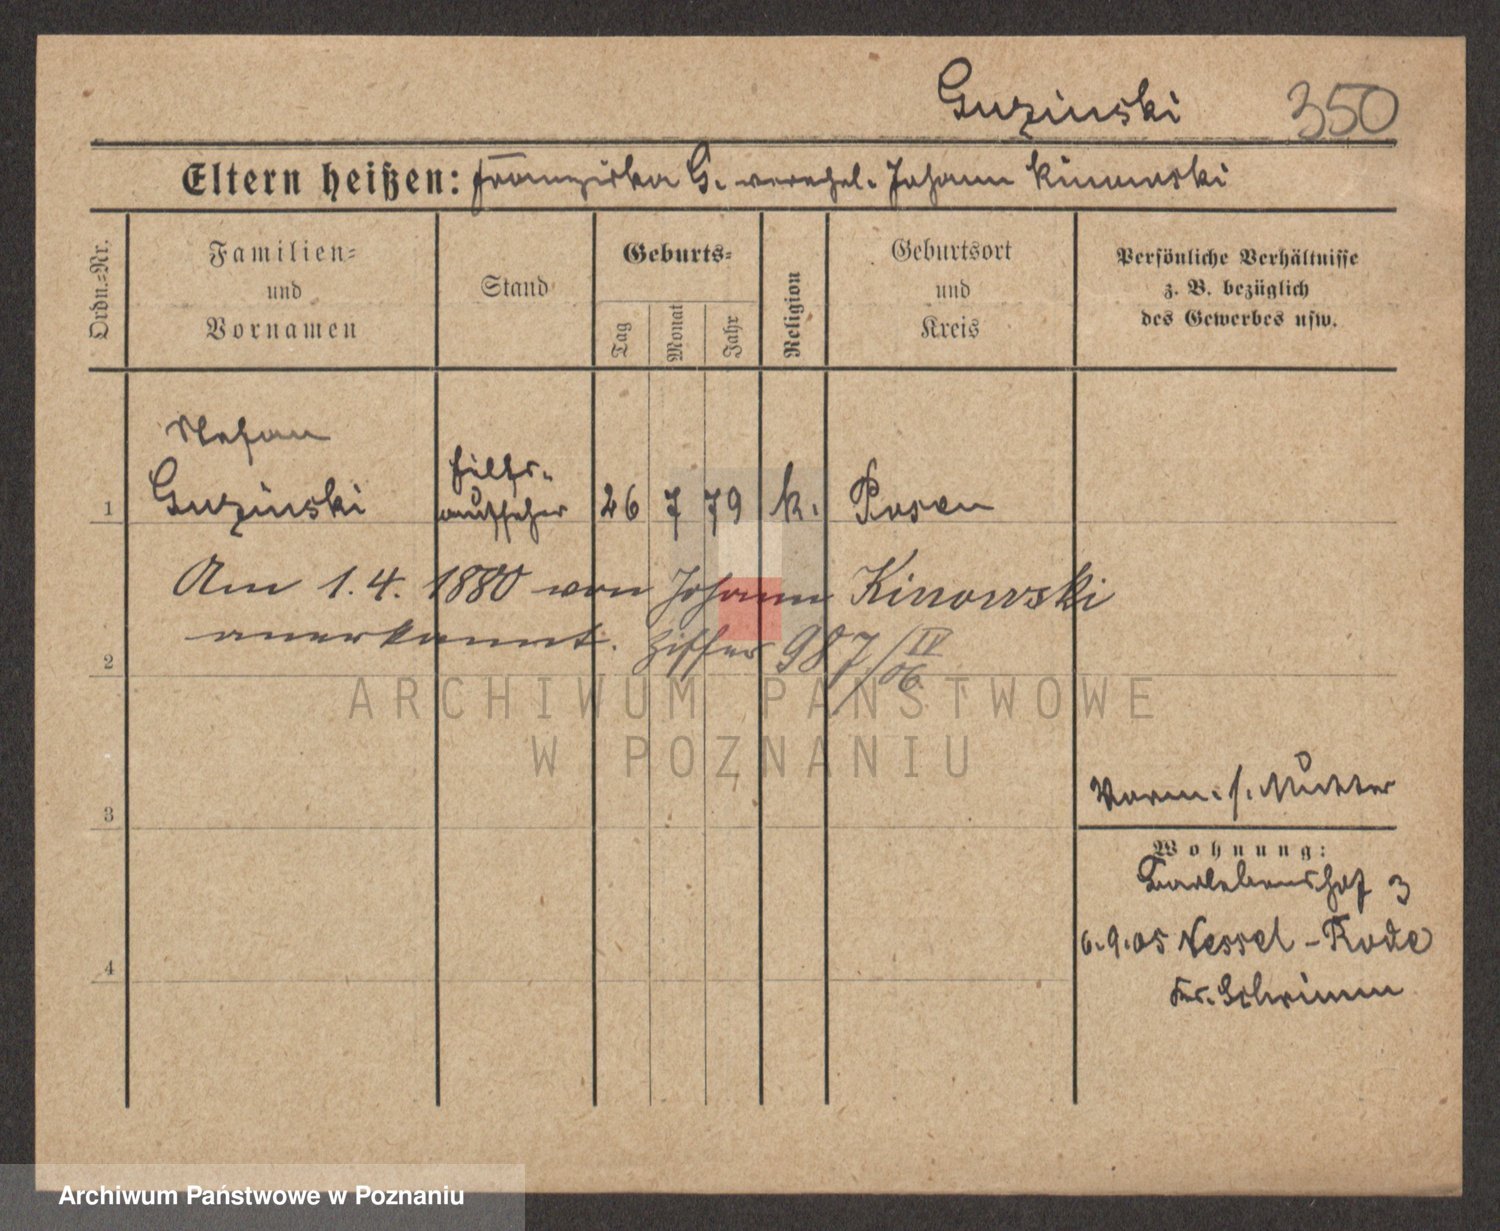 Guzinski 350
Eltern heißen: Franziska G. verehel. Johann Kinowski
Ordn.-Nr.
Familien-
und
Vornamen
Stand
Geburts-
Tag
Monat
Jahr
Religion
Geburtsort
und
Kreis
Persönliche Verhältnisse
z. B. bezüglich
des Gewerbes usw.
Stefan
1 Guzinski Hilfs-
aufseher 26 7 79 k. Posen
Am 1.4. 1880 von Johann Kinowski
2 anerkannt. Ziffer 987/IV 06
ARCHIWUM PAŃSTWOWE
W POZNANIU
3
Vorm. s. Mutter
Wohnung:
3
6.9.05 Nessel-Rode
4
Kr. Schrimm
Archiwum Państwowe w Poznaniu